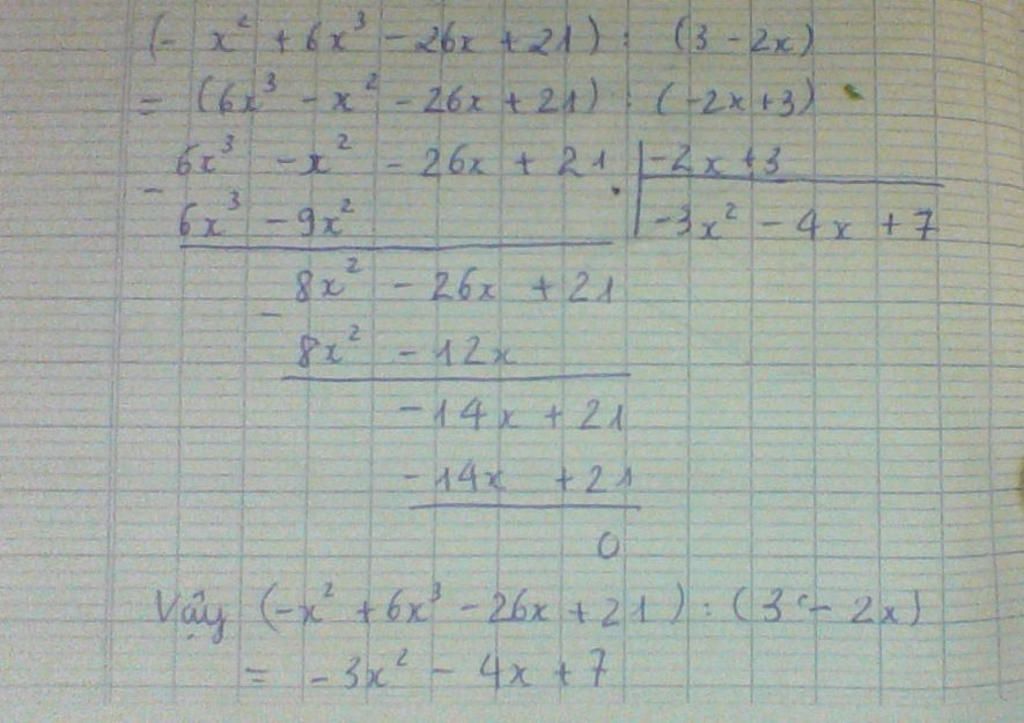 (- x² + 6x³ - 26x + 21) : (3 - 2x)
= (6x³ - x² - 26x + 21) : (-2x + 3)
6x³ - x² - 26x + 21 | -2x + 3
- 6x³ - 9x² | -3x² - 4x + 7
8x² - 26x + 21
- 8x² - 12x
-14x + 21
-14x + 21
0
Vậy (-x² + 6x³ - 26x + 21) : (3 - 2x)
= -3x² - 4x + 7